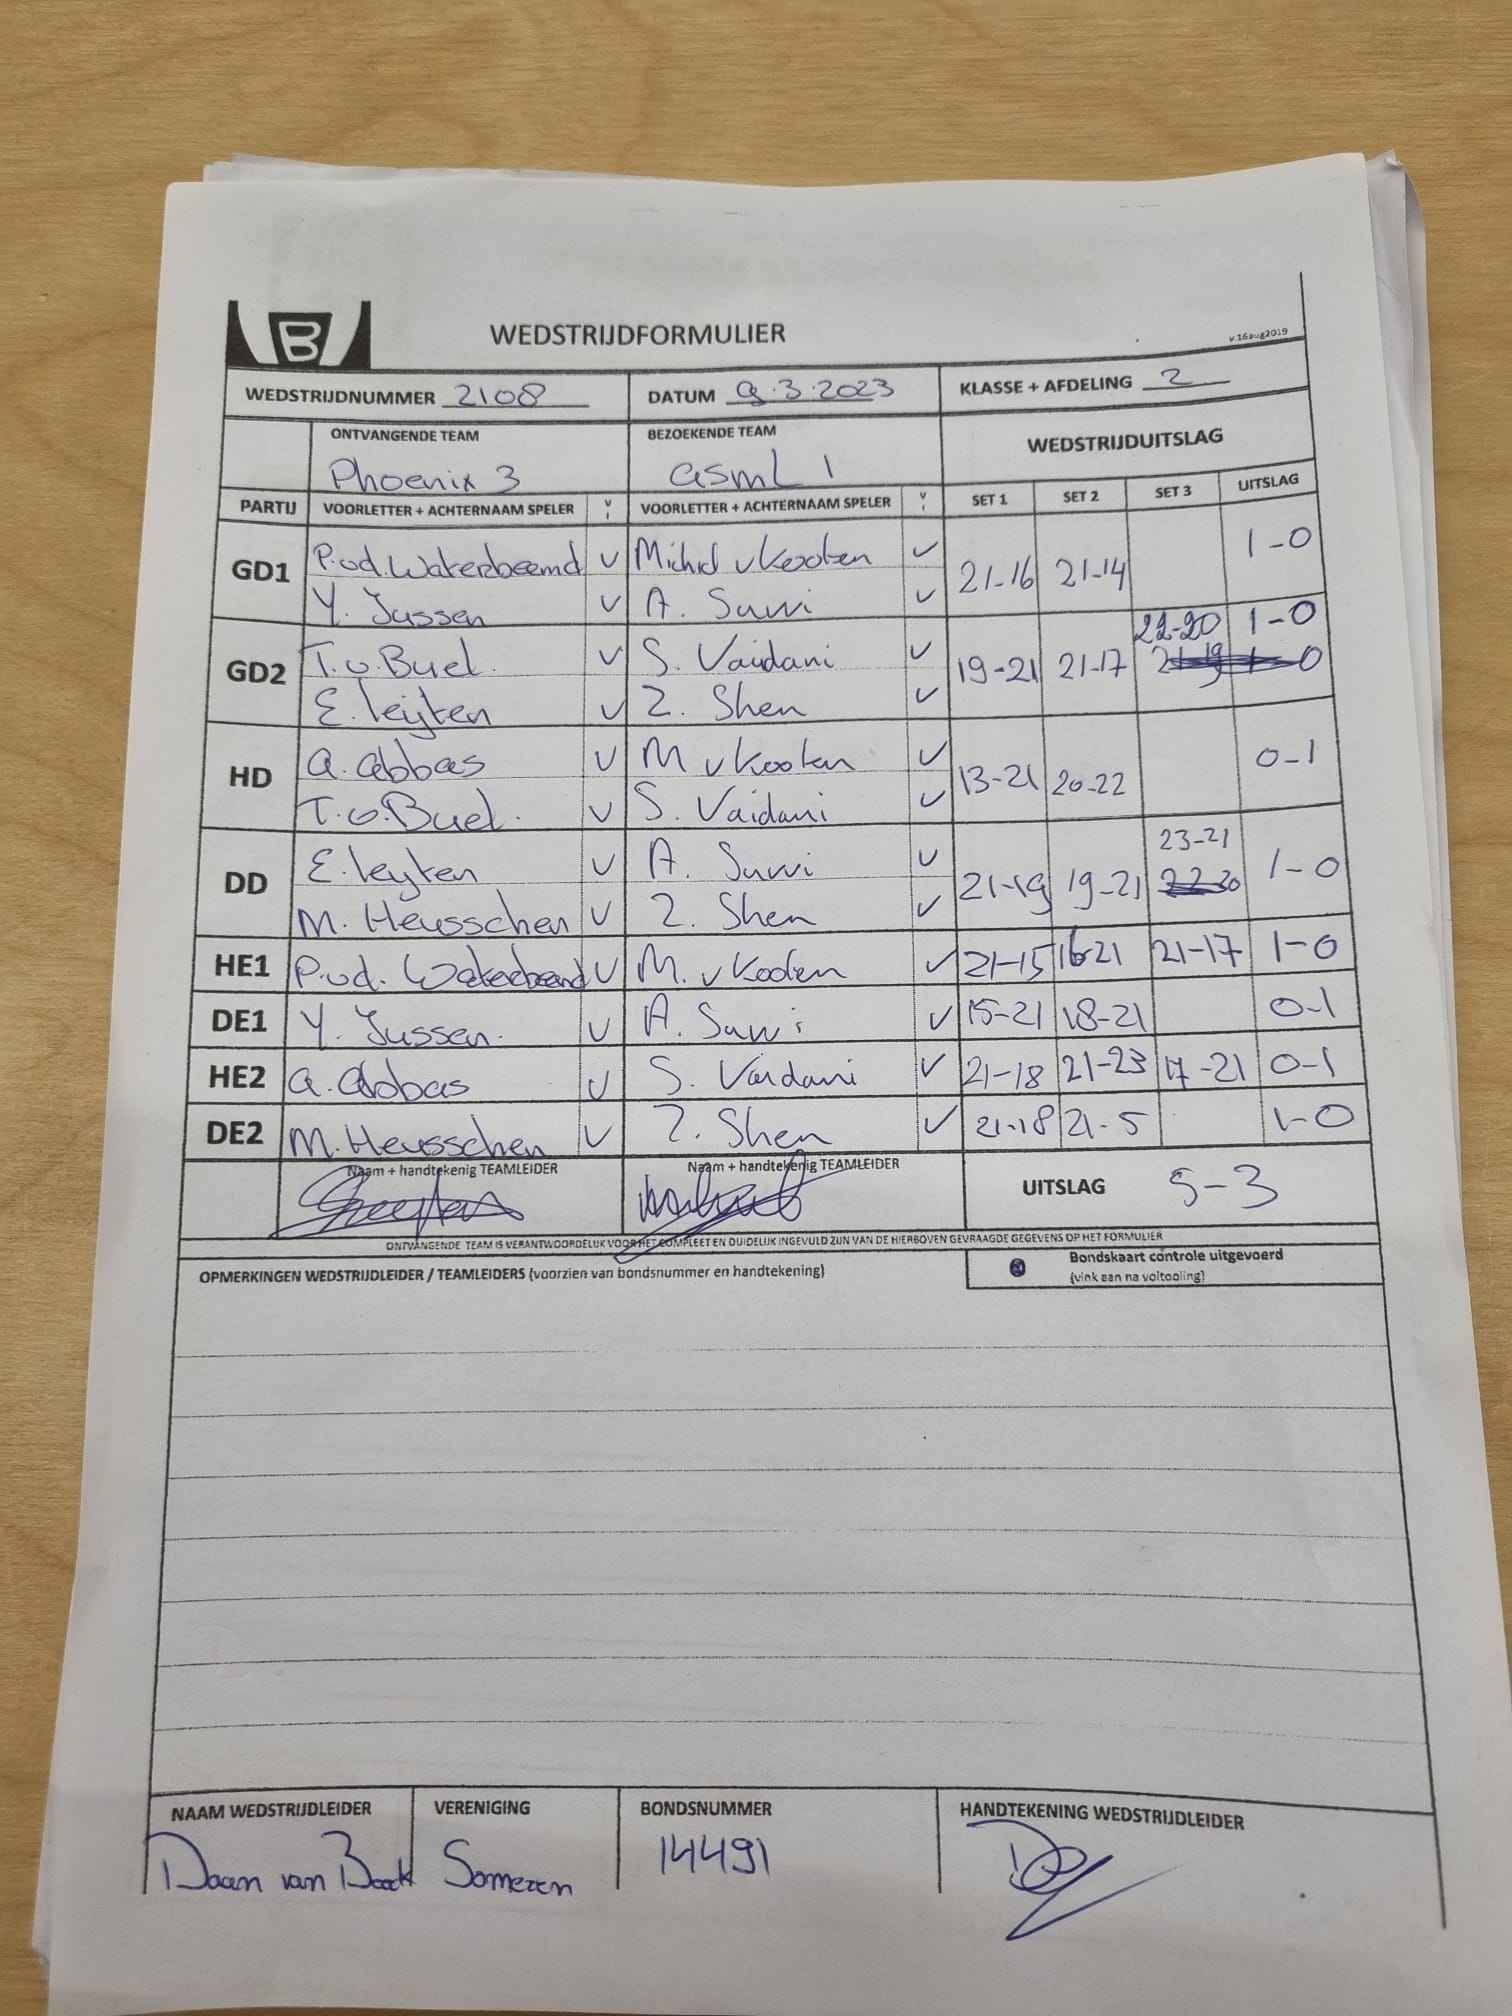 B
WEDSTRIJDFORMULIER
v.16aug2019
WEDSTRIJDNUMMER 2108 DATUM 9.3.2023 KLASSE + AFDELING 2
ONTVANGENDE TEAM BEZOEKENDE TEAM WEDSTRIJDUITSLAG
Phoenix 3 asmL 1
PARTIJ VOORLETTER + ACHTERNAAM SPELER v VOORLETTER + ACHTERNAAM SPELER v SET 1 SET 2 SET 3 UITSLAG
GD1 P.vd.Waterbeemd v Michel vKooten v 21-16 21-14 1-0
Y. Jussen v A. Sawi v
22-20 1-0
GD2 T.v.Buel. v S. Vaidani v 19-21 21-17 21-19 1-0
E. Leyten v Z. Shen v
HD a. abbas v M vKooten v 13-21 20-22 0-1
T.v.Buel. v S. Vaidani v
23-21
DD E. Leyten v A. Sawi v 21-19 19-21 22-20 1-0
M. Heusschen v Z. Shen v
HE1 P.vd. Waterbeemd v M. vKooten v 21-15 16-21 21-17 1-0
DE1 Y. Jussen. v A. Sawi v 15-21 18-21 0-1
HE2 a. abbas v S. Vaidani v 21-18 21-23 17-21 0-1
DE2 M. Heusschen v Z. Shen v 21-18 21-5 1-0
Naam + handtekenig TEAMLEIDER Naam + handtekenig TEAMLEIDER
UITSLAG 5-3
ONTVANGENDE TEAM IS VERANTWOORDELIJK VOOR HET COMPLEET EN DUIDELIJK INGEVULD ZIJN VAN DE HIERBOVEN GEVRAAGDE GEGEVENS OP HET FORMULIER
OPMERKINGEN WEDSTRIJDLEIDER / TEAMLEIDERS (voorzien van bondsnummer en handtekening)
Bondskaart controle uitgevoerd
(vink aan na voltooiing)
NAAM WEDSTRIJDLEIDER VERENIGING BONDSNUMMER HANDTEKENING WEDSTRIJDLEIDER
Daan van Someren 14491